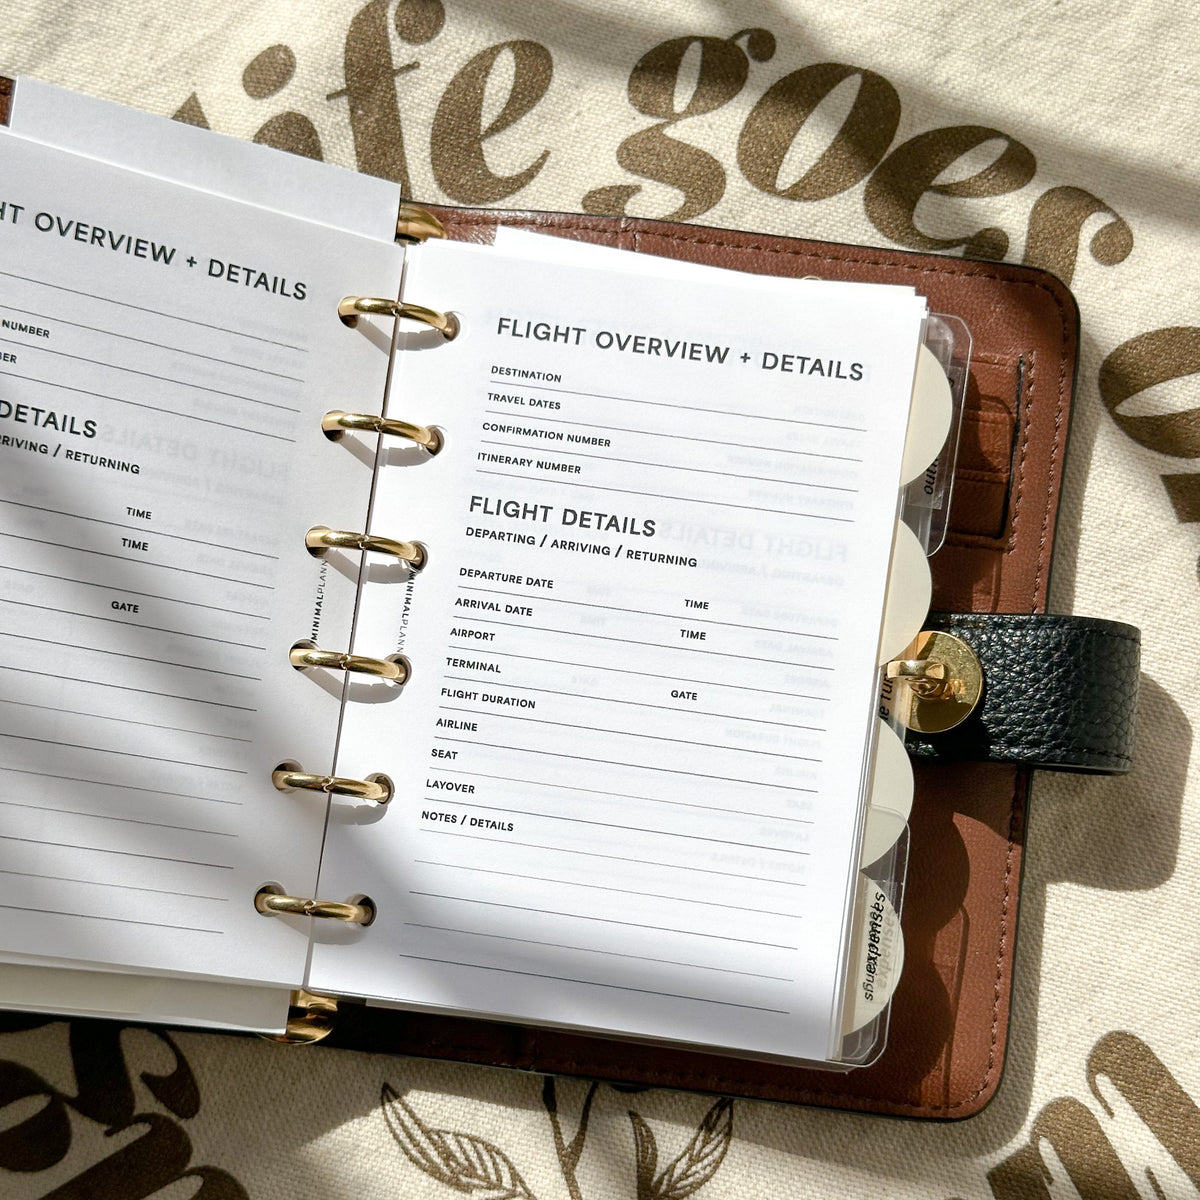 life goes
on
HT OVERVIEW + DETAILS
NUMBER
BER
DETAILS
ARRIVING / RETURNING
TIME
TIME
GATE
MINIMALPLANN
MINIMALPLANN
FLIGHT OVERVIEW + DETAILS
DESTINATION
TRAVEL DATES
CONFIRMATION NUMBER
ITINERARY NUMBER
FLIGHT DETAILS
DEPARTING / ARRIVING / RETURNING
DEPARTURE DATE TIME
ARRIVAL DATE TIME
AIRPORT
TERMINAL GATE
FLIGHT DURATION
AIRLINE
SEAT
LAYOVER
NOTES / DETAILS
expenses